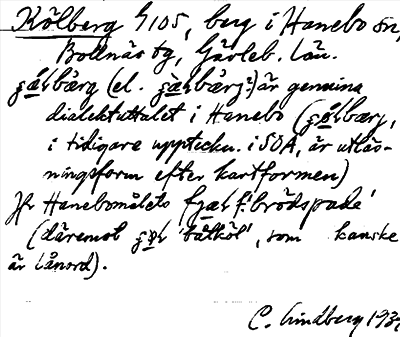 Kölberg 4/105, berg i Hanebo sn,
Bollnäs tg, Gävleb. län.
(el. är genuina
dialektuttalet i Hanebo (
i tidigare uppteckn. i SOA, är utläs-
ningsform efter kartformen)
Jfr Hanebomålets f. 'brödspade'
(däremot 'båtköl', som kanske
är lånord).
C. Lindberg 193